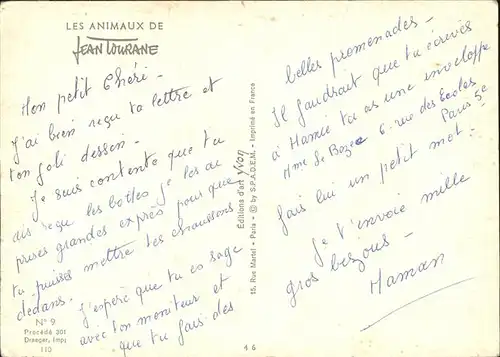 LES ANIMAUX DE
JEAN TOURANE
Mon petit Chéri -
J'ai bien reçu ta lettre et
ton joli dessin -
Je suis contente que tu
ais reçu les bottes je les ai
prises grandes exprès pour que
tu puisses mettre tes chaussons
dedans.
J'espère que tu es sage
avec ton moniteur et
que tu fais des
N° 9
Procédé 301
Draeger, Imp
110
Editions d'art Yvon
15, Rue Martel - Paris - © by S.P.A.D.E.M. - Imprimé en France
46
belles promenades -
Il faudrait que tu écrives
à Mamie tu as une enveloppe
Mme Le Bozec 6 rue des Ecoles
Paris 5e
fais lui un petit mot -
Je t'envoie mille
gros besjous -
Maman